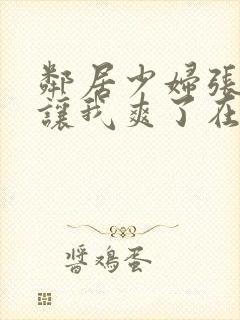 鄰居少婦張
讓我爽了在
醬鸡蛋